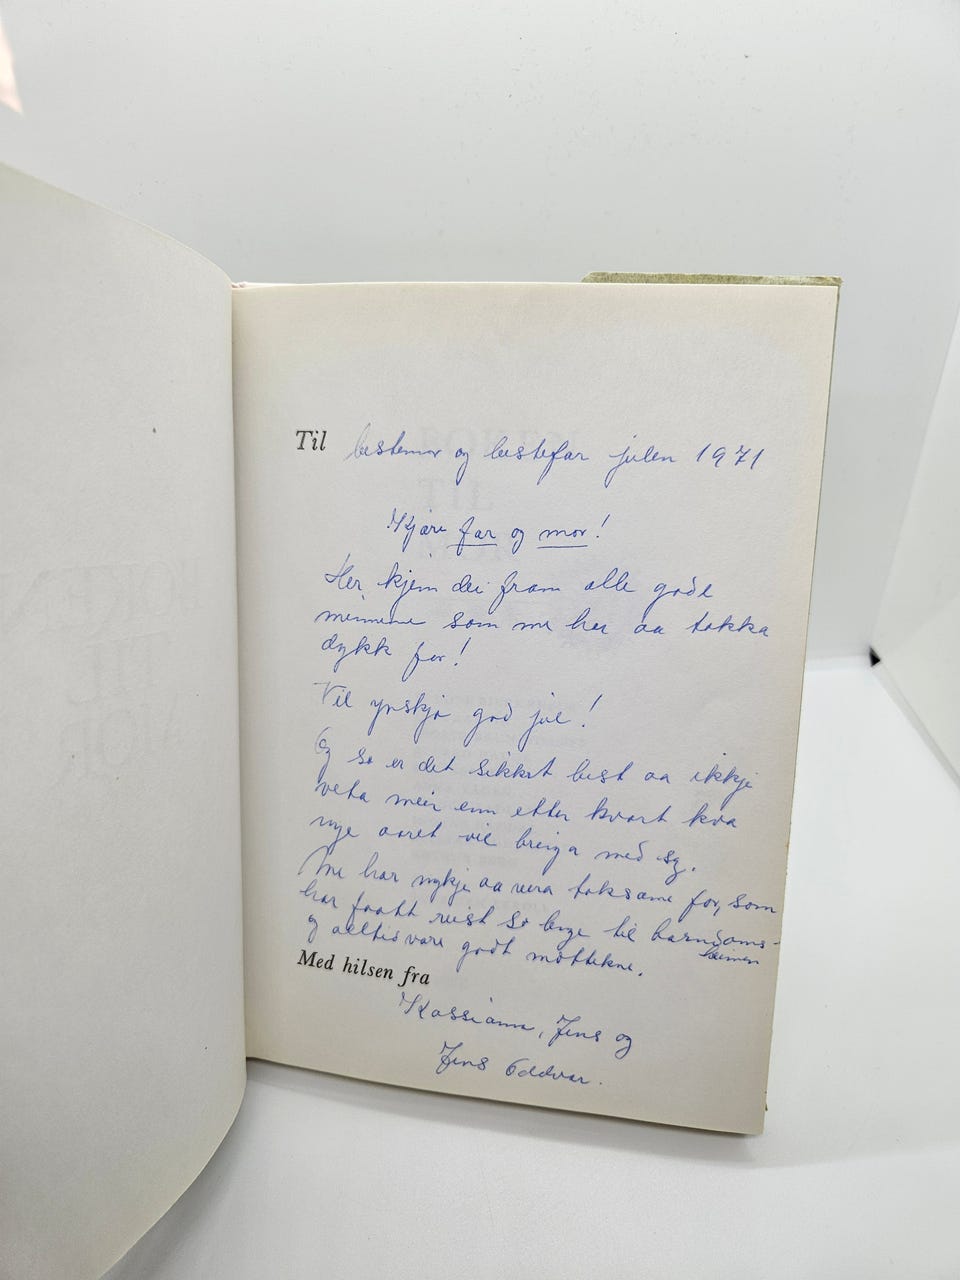 Til bestemor og bestefar julen 1971
Kjære far og mor!
Her kjem dei fram alle gode
minnene som me her aa takka
dykk for!
Vil ynskja god jul!
Og so er det sikkert best aa ikkje
veta meir enn etter kvart kva
nye aaret vil bringa med sg.
Me har mykje aa vera taksame for, som
har faatt reist so lenge til barndoms-
heimen
og alltid vore godt mottekne.
Med hilsen fra
Jens og
Jens Oddvar.